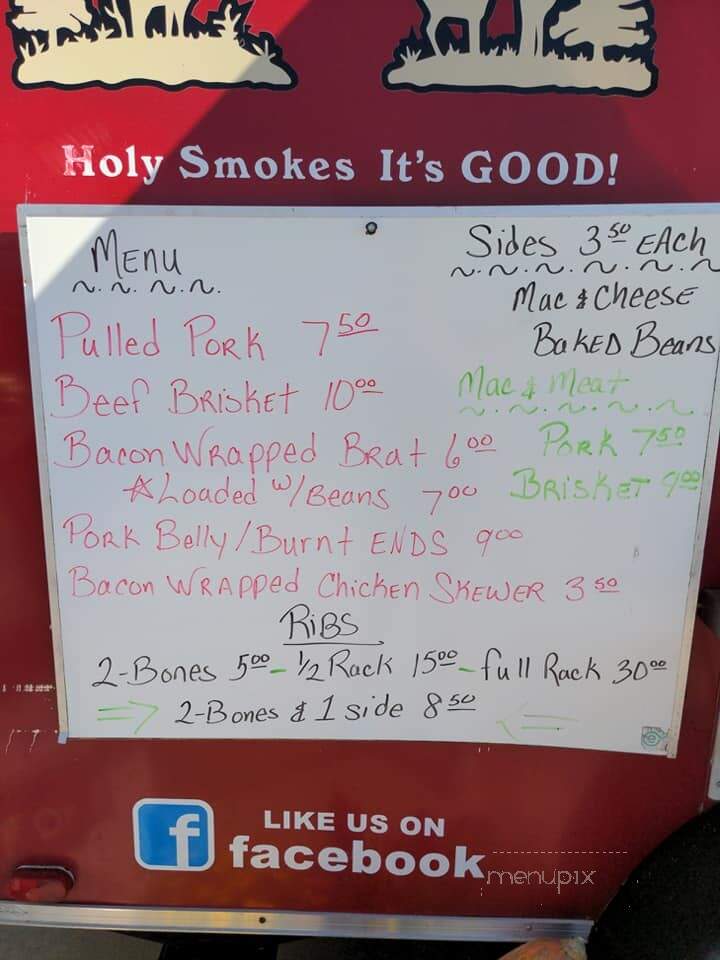 Holy Smokes It's GOOD!
Menu
Pulled Pork 7 50
Beef Brisket 10 00
Bacon Wrapped Brat 6 00
☆Loaded w/Beans 7 00
Pork Belly/Burnt ENDS 9 00
Bacon Wrapped Chicken Skewer 3 50
Sides 3 50 EAch
Mac & Cheese
Baked Beans
Mac & Meat
Pork 7 50
Brisket 9 00
Ribs
2-Bones 5 00 - 1/2 Rack 15 00 - full Rack 30 00
⇒ 2-Bones & 1 side 8 50 ⇐
f LIKE US ON
facebook
menupix